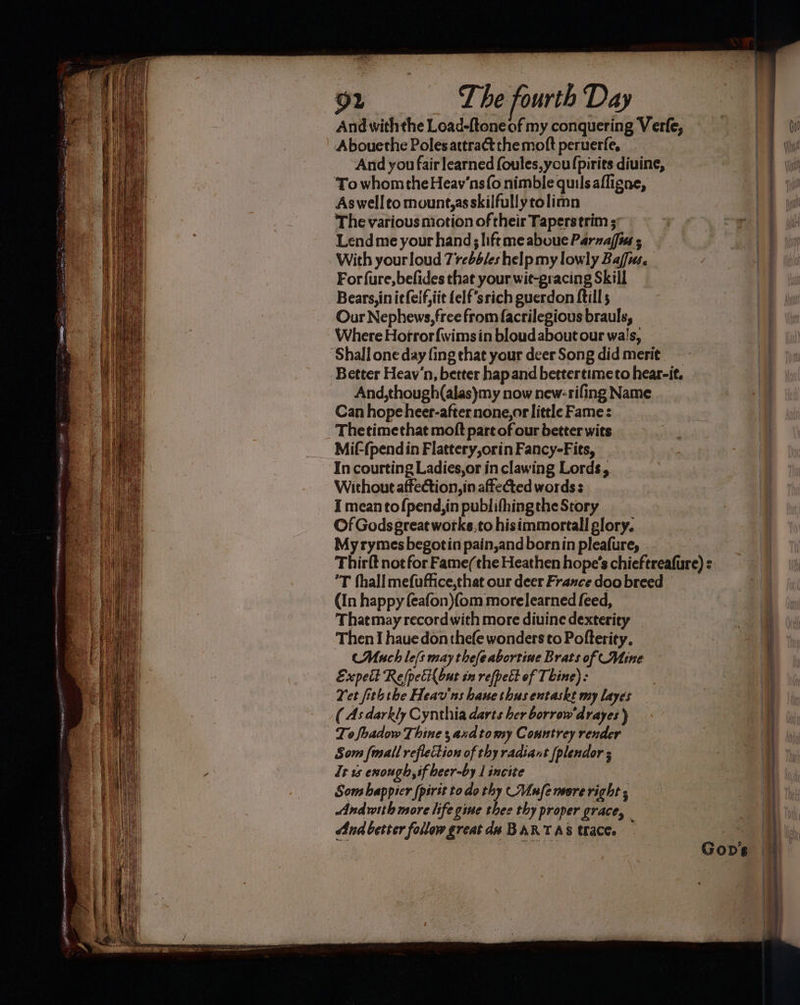 92 The fourth Day
And with the Load-ſtone of my conquering Verſe,
Aboue the Poles attract the moſt peruerſe,
And you fair learned ſoules, you ſpirits diuine,
To whom the Heav'ns ſo nimble quils aſſigne,
As well to mount, as skilfully to limn
The various motion of their Tapers trim;
Lend me your hand; lift me aboue Parnaſſus;
With your loud Trebbles help my lowly Baſſus.
For ſure, beſides that your wit-gracing Skill
Bears, in it ſelf, iit ſelf's rich guerdon ſtill;
Our Nephews, free from ſacrilegious brauls,
Where Horror ſwims in bloud about our wals,
Shall one day ſing that your deer Song did merit
Better Heav'n, better hap and better time to hear-it.
And, though (alas) my now new-riſing Name
Can hope heer-after none, or little Fame:
The time that moſt part of our better wits
Miſ-ſpend in Flattery, or in Fancy-Fits,
In courting Ladies, or in clawing Lords,
Without affection, in affected words:
I mean to ſpend, in publiſhing the Story
Of Gods great works, to his immortall glory.
My rymes begot in pain, and born in pleaſure,
Thirſt not for Fame (the Heathen hope's chief treaſure):
'T ſhall me ſuffice, that our deer France doo breed
(In happy ſeaſon) ſom more learned ſeed,
That may record with more diuine dexterity
Then I haue don theſe wonders to Poſterity.
Much leſs may theſe abortiue Brats of Mine
Expect Reſpect (but in reſpect of Thine):
Yet ſith the Heav'ns haue thus entaskt my layes
(As darkly Cynthia darts her borrow'd rayes)
To ſhadow Thine; and to my Countrey render
Som ſmall reflection of thy radiant ſplendor;
It is enough, if heer-by I incite
Som happier ſpirit to do thy Muſe more right;
And with more life giue thee thy proper grace,
And better follow great du BARTAS trace.
GOD's